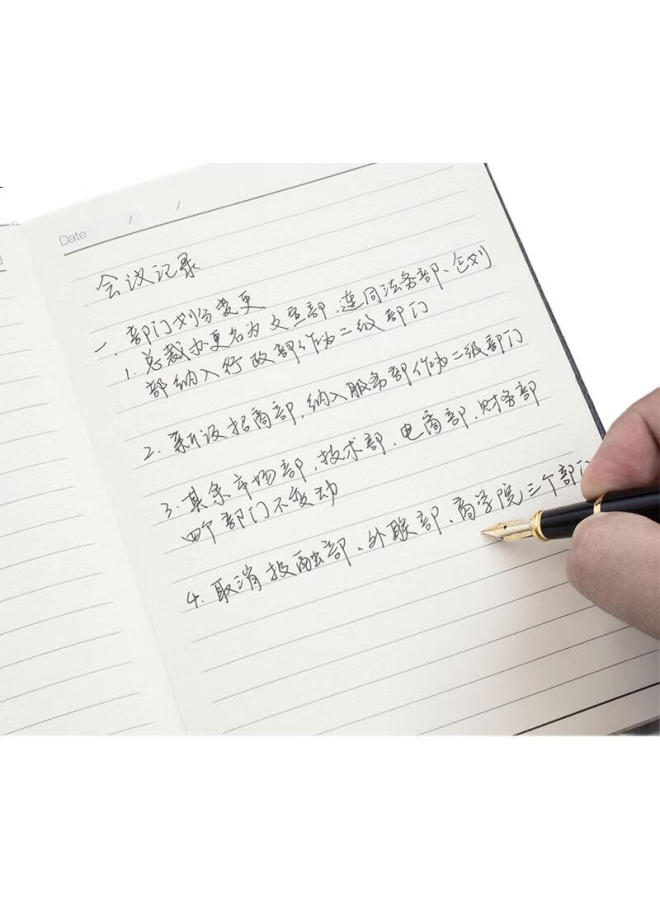 Date / /
会议记录
一. 部门划分变更
1. 总裁办更名为文宣部、连同法务部、企划
部纳入行政部作为二级部门
2. 新设招商部, 纳入服务部作为二级部门
3. 其余市场部、技术部、电商部、财务部
四个部门不变动
4. 取消投融部、外联部、商学院三个部门